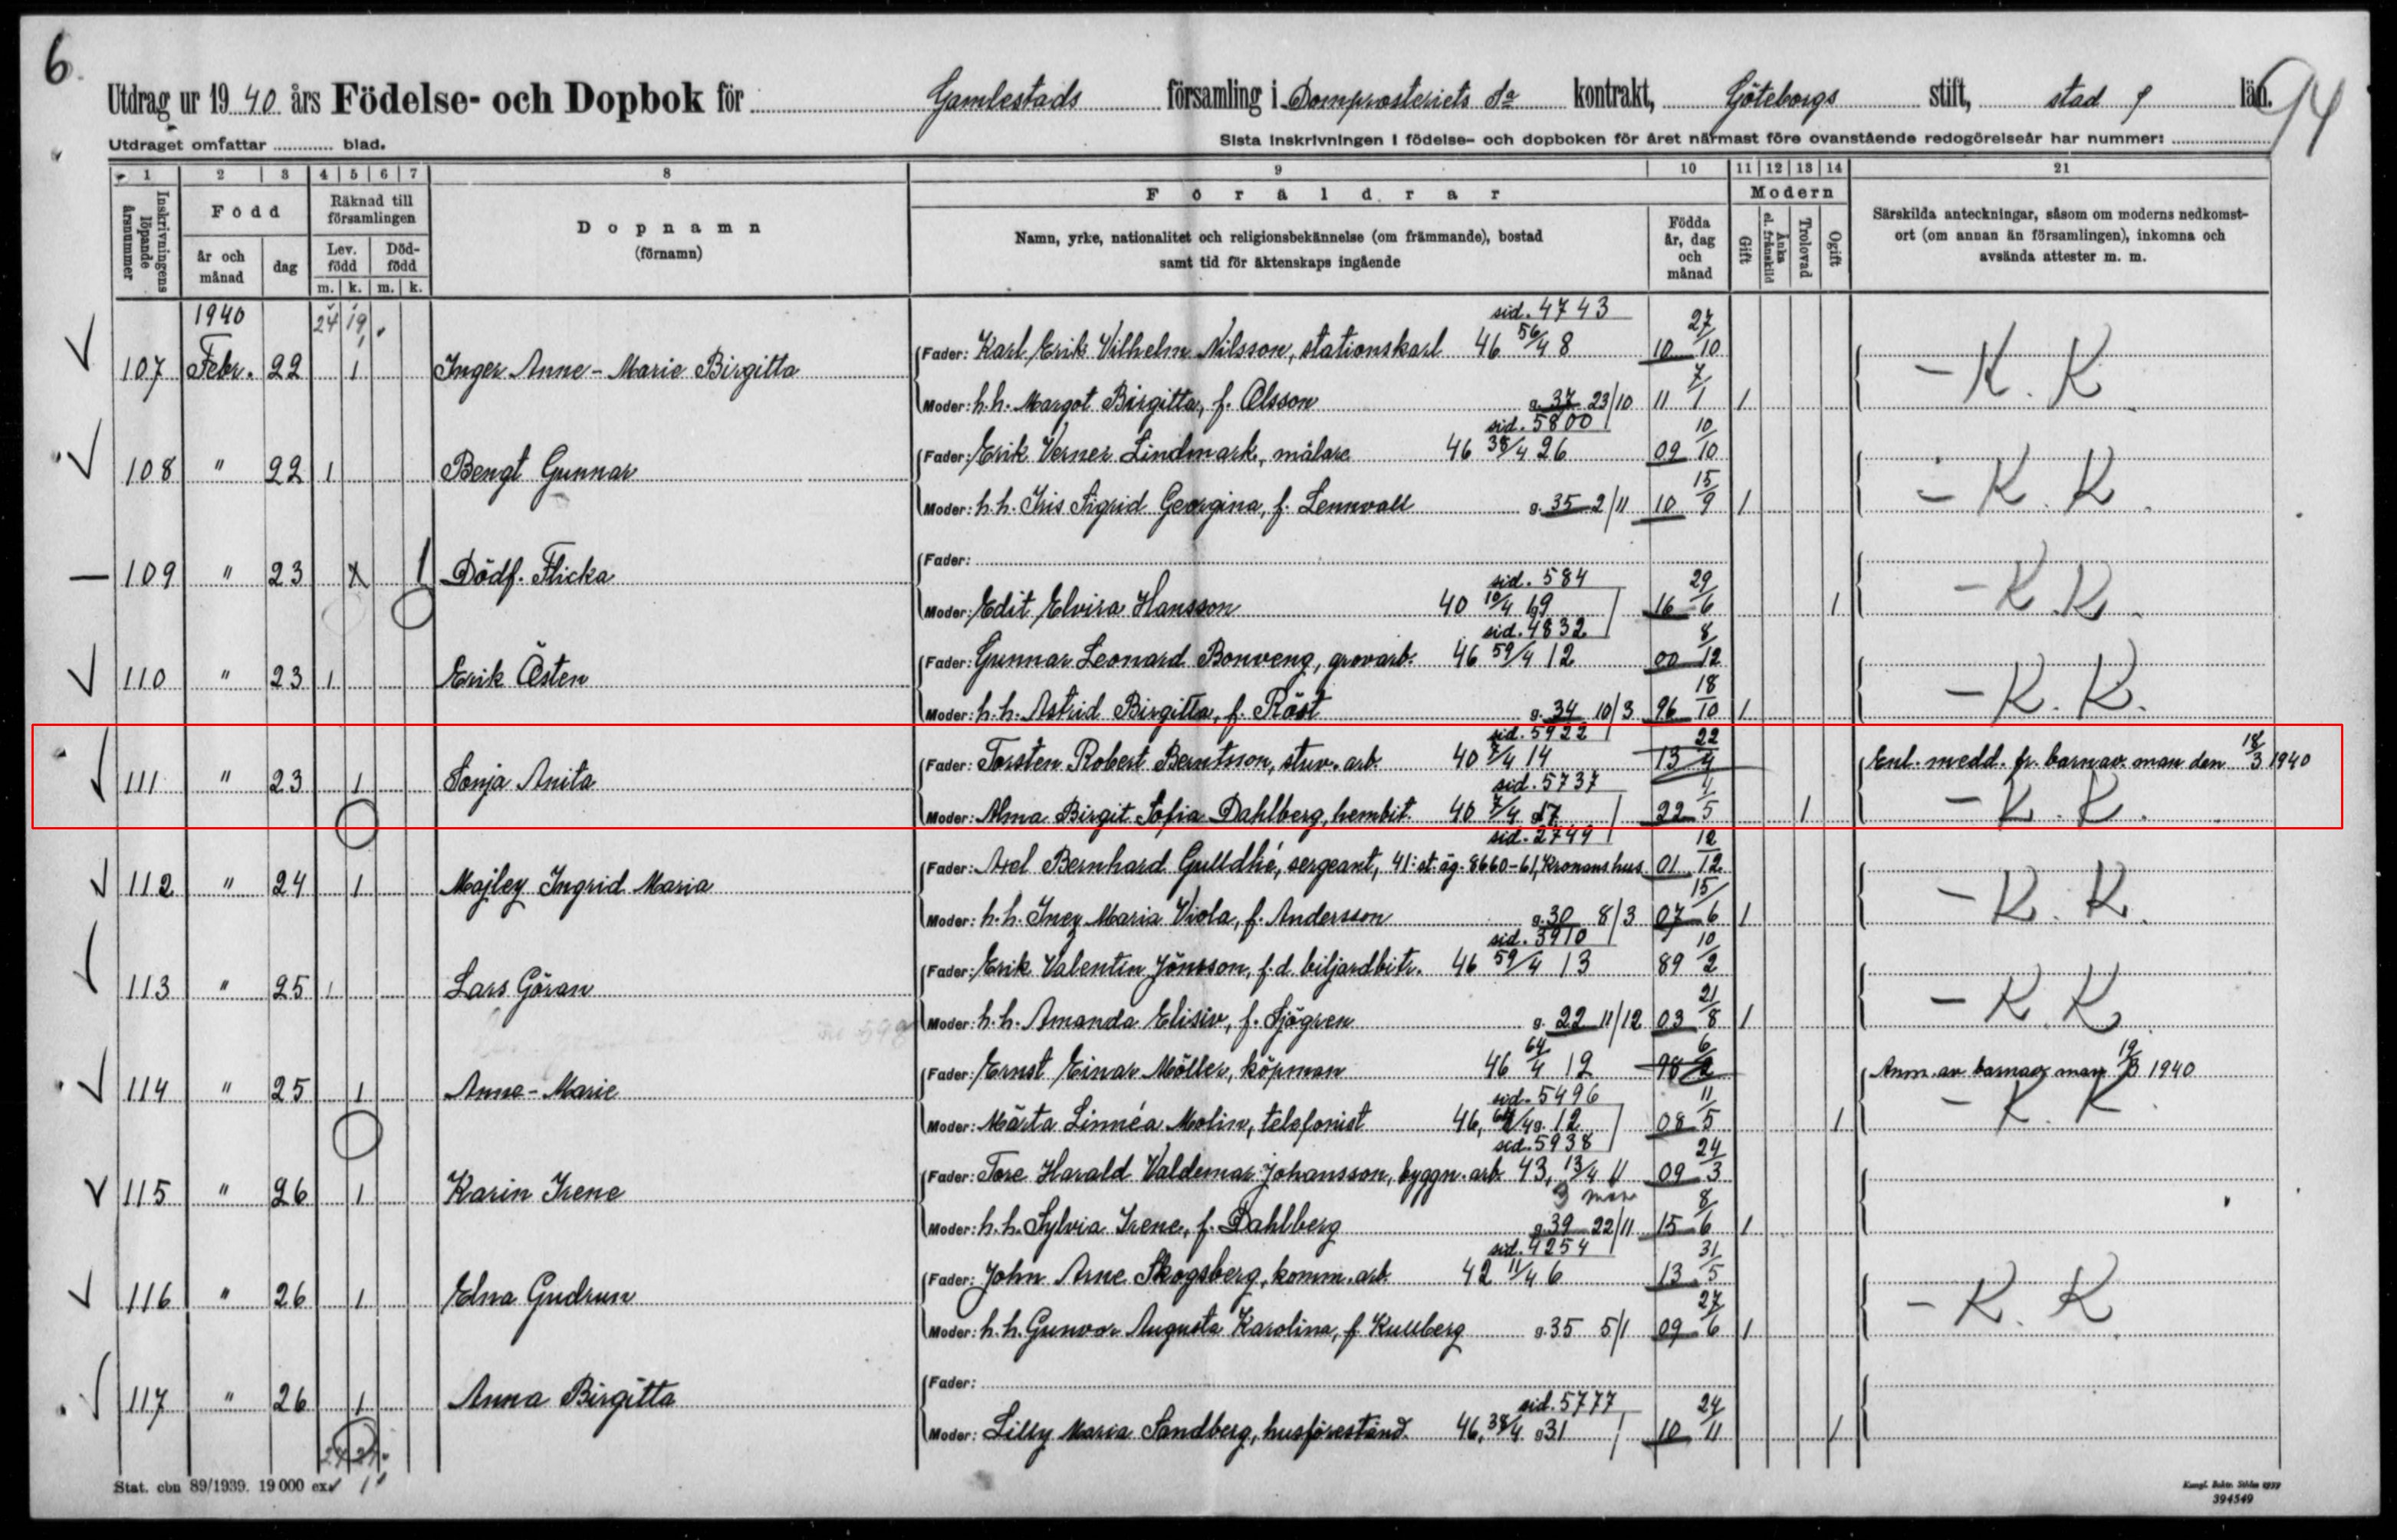 6.
94
Utdrag ur 1940 års Födelse- och Dopbok för Gamlestads församling i Domprosteriets kontrakt, Göteborgs stift, stad län.
Utdraget omfattar ............ blad.
Sista inskrivningen i födelse- och dopboken för året närmast före ovanstående redogörelseår har nummer: ............
1 2 3 4 5 6 7 8 9 10 11 12 13 14 21
Inskrivningens löpande årsnummer
Född
år och månad
dag
Räknad till församlingen
Lev. född
Död- född
m. k. m. k.
Dopnamn
(förnamn)
Föräldrar
Namn, yrke, nationalitet och religionsbekännelse (om främmande), bostad
samt tid för äktenskaps ingående
Födda år, dag och månad
Modern
Gift
Änka el. frånskild
Trolovad
Ogift
Särskilda anteckningar, såsom om moderns nedkomst-
ort (om annan än församlingen), inkomna och
avsända attester m. m.
1940 24 19
sid. 4743
107 Febr. 22 1 Inger Anne-Marie Birgitta
Fader: Karl Erik Vilhelm Nilsson, stationskarl 46 56/4 8 10 27/10
Moder: h.h. Margot Birgitta, f. Olsson g. 37 23/10 11 7/1 1
- K. K
sid. 5800
108 " 22 1 Bengt Gunnar
Fader: Erik Verner Lindmark, målare 46 38/4 26 09 10/10
Moder: h.h. Iris Sigrid Georgina, f. Lennvall g. 35 2/11 10 15/9 1
- K. K.
109 " 23 1 Dödf. Flicka
Fader:
sid. 584
Moder: Edit Elvira Hansson 40 10/4 19 16 29/6 1
- K. K.
sid. 4832
110 " 23 1 Erik Östen
Fader: Gunnar Leonard Bonveng, grovarb. 46 59/4 12 00 8/12
Moder: h.h. Astrid Birgitta, f. Röst g. 34 10/3 96 18/10 1
- K. K.
sid. 5922
111 " 23 1 Sonja Anita
Fader: Torsten Robert Berntsson, stuv. arb. 40 7/4 14 13 22/4
Enl. medd. fr. barnav. man den 18/3 1940
sid. 5737
Moder: Alma Birgit Sofia Dahlberg, hembit. 40 7/4 17 22 1/5 1
- K. K.
sid. 2749
112 " 24 1 Majley Ingrid Maria
Fader: Axel Bernhard Gulldhé, sergeant, 41: st. äg. 8660-61, Kronans hus 01 12/12
Moder: h.h. Inez Maria Viola, f. Andersson g. 30 8/3 07 15/6 1
- K. K.
sid. 3910
113 " 25 1 Lars Göran
Fader: Erik Valentin Jönsson, f.d. biljardbitr. 46 59/4 13 89 10/2
Moder: h.h. Amanda Elisiv, f. Sjögren g. 22 11/12 03 21/8 1
- K. K.
114 " 25 1 Anne-Marie
Fader: Ernst Einar Möller, köpman 46 64/4 12 98 6/2
Anm. av barnav. man 19/3 1940
sid. 5496
Moder: Märta Linnéa Molin, telefonist 46, 64/4 12 08 11/5 1
- K. K.
sid. 5938
115 " 26 1 Karin Irene
Fader: Tore Harald Valdemar Johansson, byggn. arb. 43, 13/4 11 09 24/3
3 mån
Moder: h.h. Sylvia Irene, f. Dahlberg g. 39 22/11 15 8/6 1
sid. 4254
116 " 26 1 Elna Gudrun
Fader: John Arne Skogsberg, komm. arb. 42 11/4 6 13 31/5
Moder: h.h. Gunvor Augusta Karolina, f. Kullberg g. 35 5/1 09 27/6 1
- K. K
117 " 26 1 Anna Birgitta
Fader:
sid. 5777
Moder: Lilly Maria Sandberg, husförestånd. 46, 38/4 31 10 24/11 1
Stat. cbn 89/1939. 19 000 ex.
Kungl. Boktr. Sthlm 1939
394549